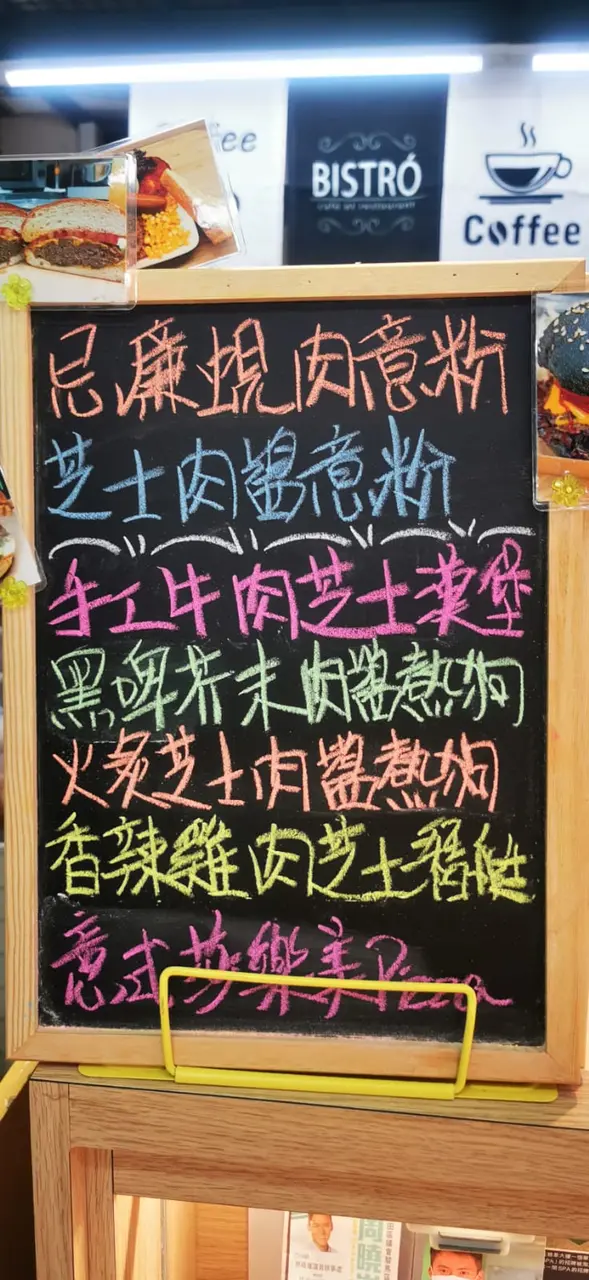 ffee
BISTRÓ
Coffee
忌廉蜆肉意粉
芝士肉醬意粉
手工牛肉芝士漢堡
黑啤芥末肉醬熱狗
火炙芝士肉醬熱狗
香辣雞肉芝士潛艇
意式莎樂美Pizza